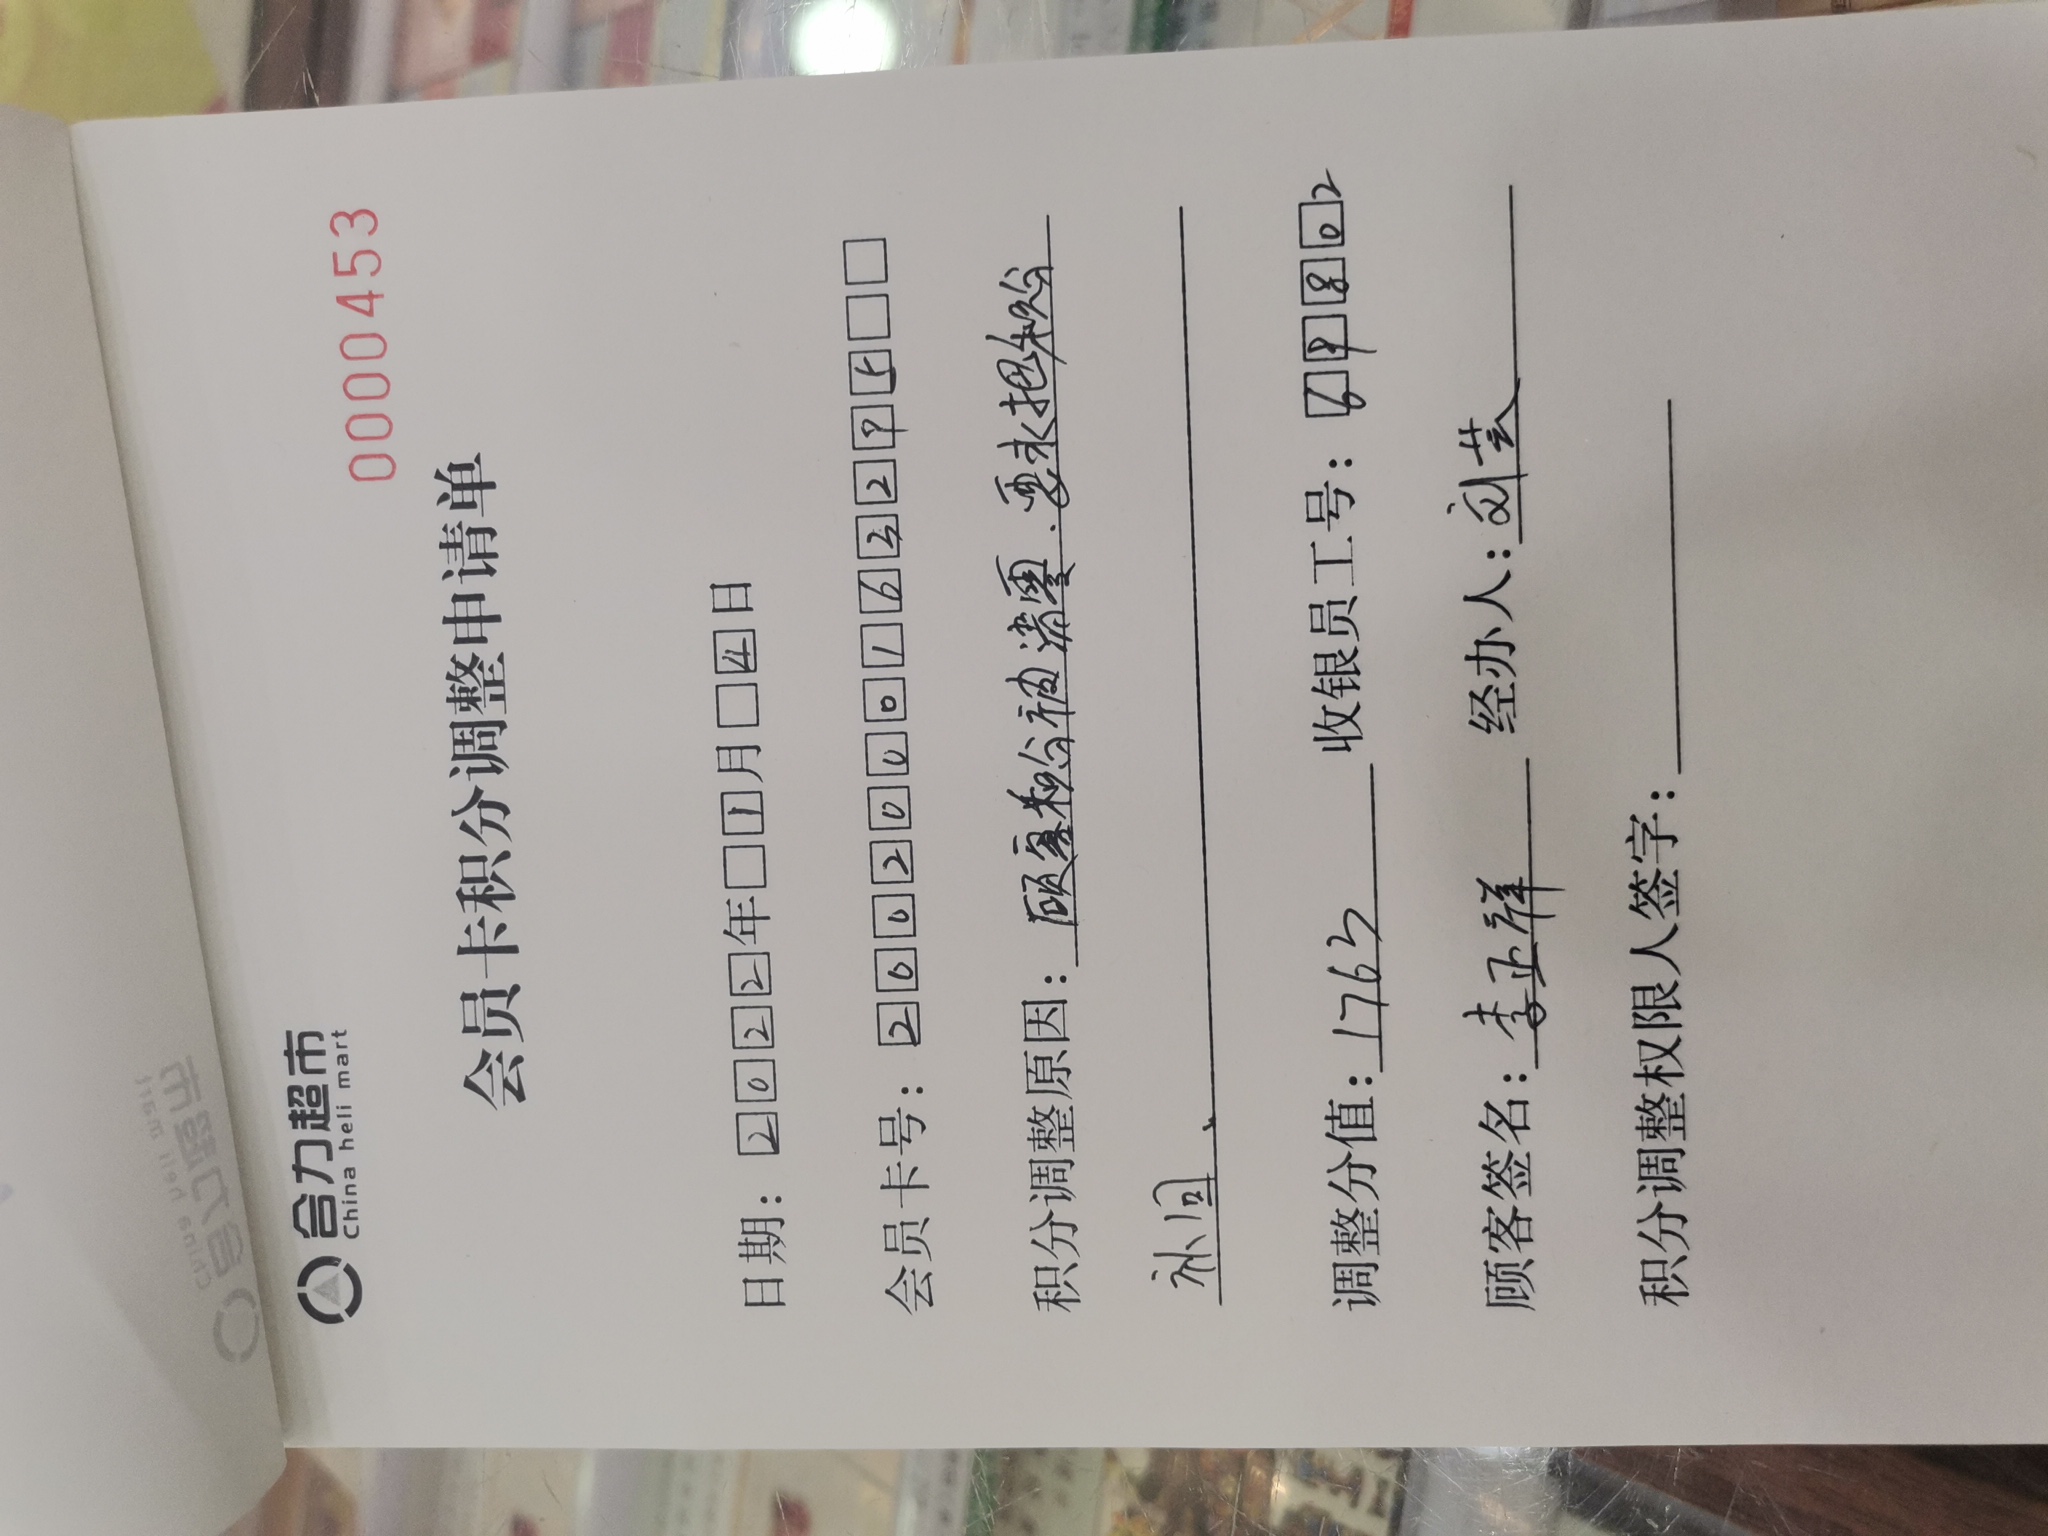 合力超市
China heli mart
0000453
会员卡积分调整申请单
日期：2022年 1月 4日
会员卡号：20020001632295
积分调整原因：顾客积分被清零.要求把积分
补回、
调整分值：1763 收银员工号：69802
顾客签名：李正祥 经办人：刘芸
积分调整权限人签字：